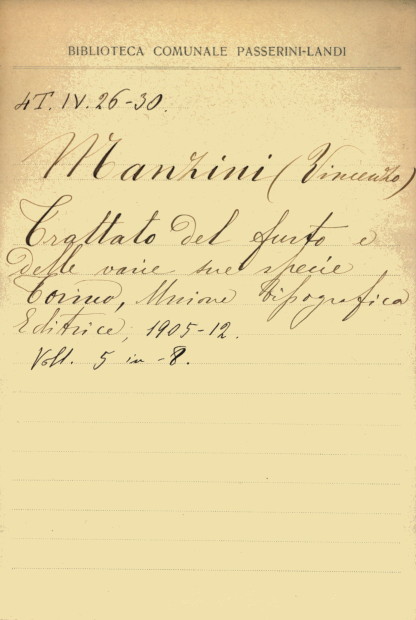 BIBLIOTECA COMUNALE PASSERINI-LANDI
4T. IV. 26-30.
Manzini (Vincenzo)
Trattato del furto e
delle varie sue specie
Torino, Unione Tipografica
Editrice, 1905-12.
Voll. 5 in -8.